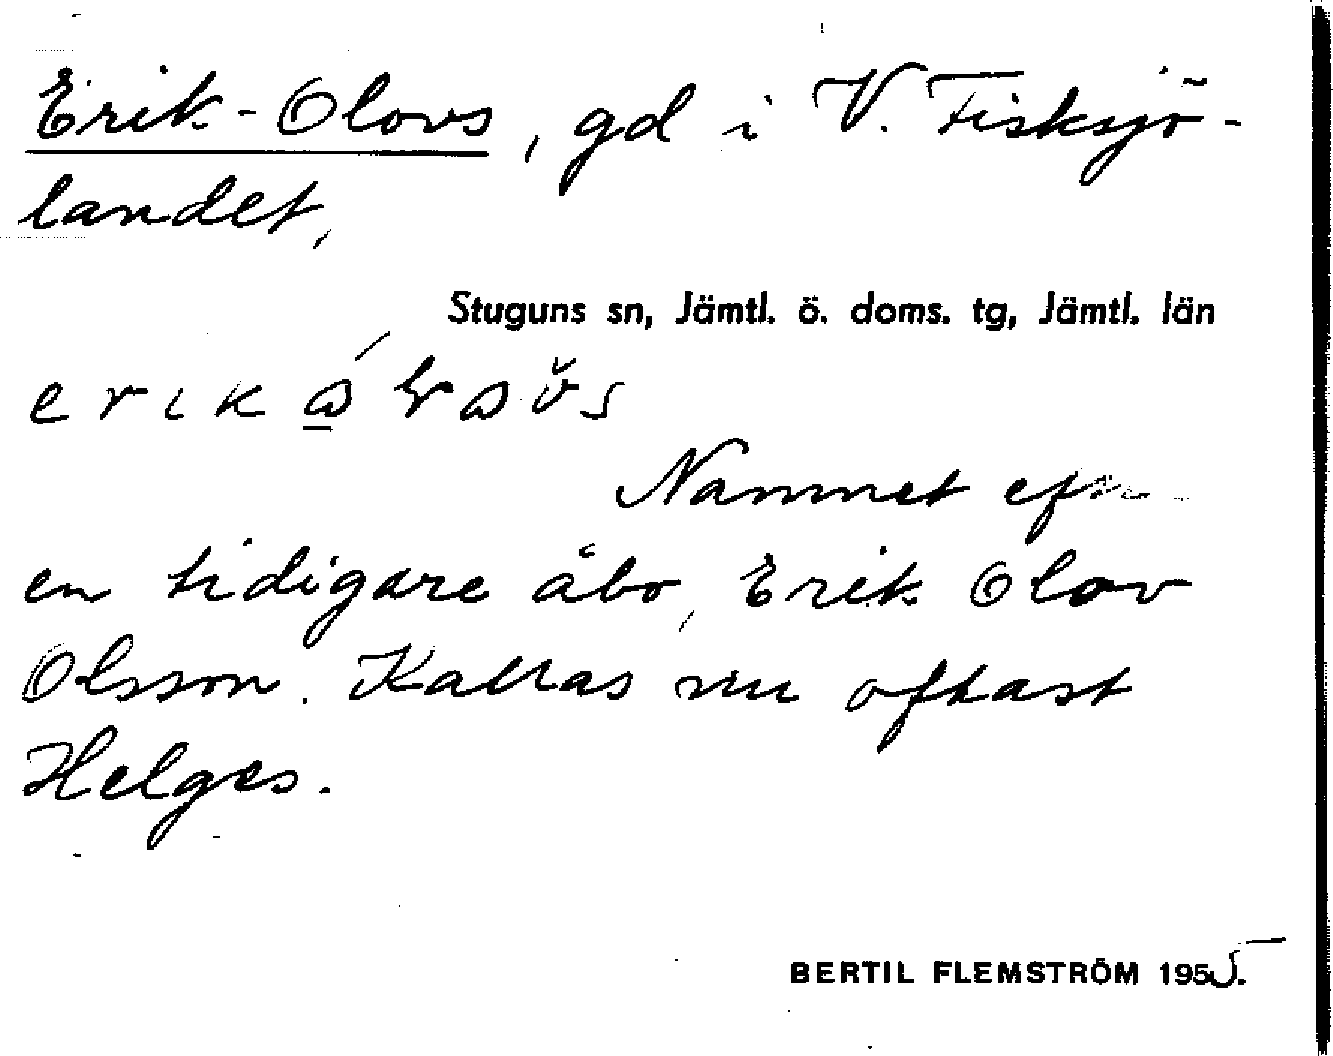 Erik-Olovs, gd i V. Fisksjö-
landet,
Stuguns sn, Jämtl. ö. doms. tg, Jämtl. län
Namnet
en tidigare åbo, Erik Olov
Olsson. Kallas nu oftast
Helges.
BERTIL FLEMSTRÖM 1955.